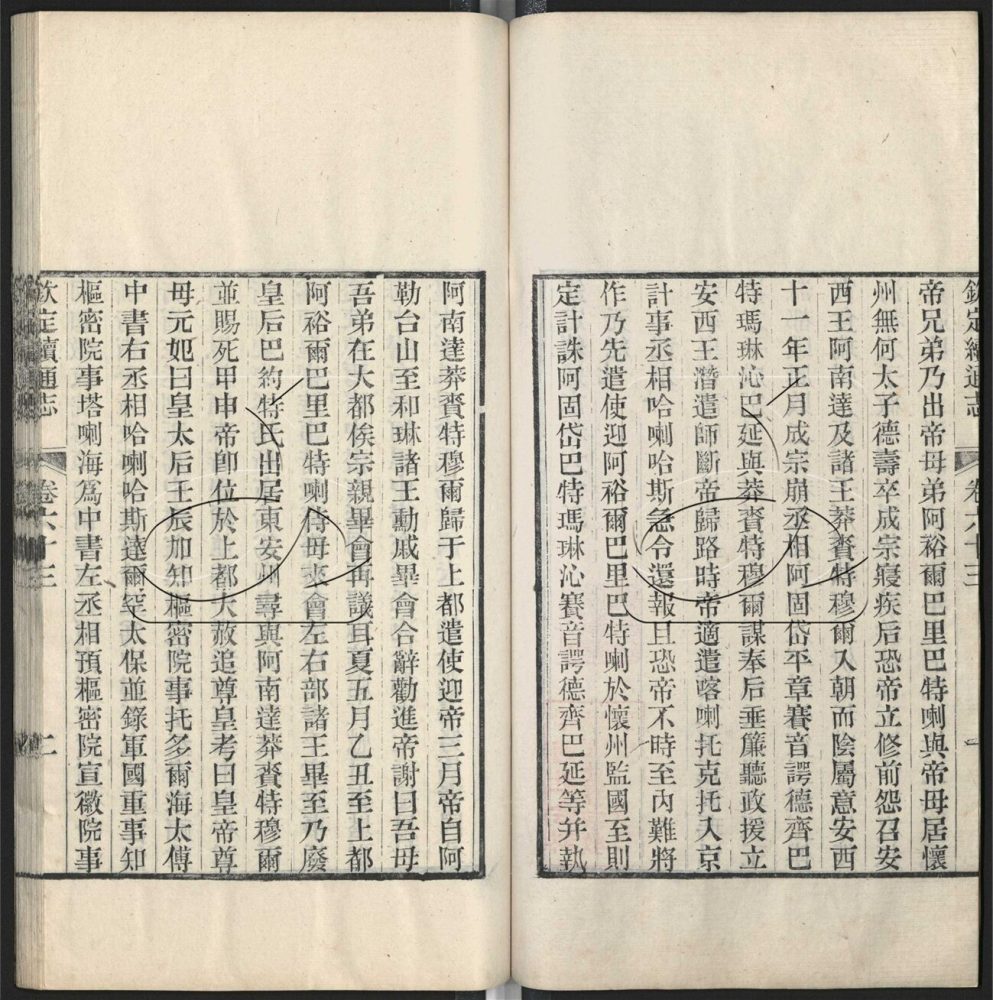 欽定續通志 卷六十三 一
帝兄弟乃出帝母弟阿裕爾巴里巴特喇與帝母居懷
州無何太子德壽卒成宗寢疾后恐帝立修前怨召安
西王阿南達及諸王莽賚特穆爾入朝而陰屬意安西
十一年正月成宗崩丞相阿固岱平章賽音諤德齊巴
特瑪琳沁巴延與莽賚特穆爾謀奉后垂簾聽政援立
安西王潛遣師斷帝歸路時帝適遣喀喇托克托入京
計事丞相哈喇哈斯急令還報且恐帝不時至內難將
作乃先遣使迎阿裕爾巴里巴特喇於懷州監國至則
定計誅阿固岱巴特瑪琳沁賽音諤德齊巴延等并執
阿南達莽賚特穆爾歸于上都遣使迎帝三月帝自阿
勒台山至和琳諸王勳戚畢會合辭勸進帝謝曰吾母
吾弟在大都俟宗親畢會再議耳夏五月乙丑至上都
阿裕爾巴里巴特喇侍母來會左右部諸王畢至乃廢
皇后巴約特氏出居東安州尋與阿南達莽賚特穆爾
並賜死甲申帝卽位於上都大赦追尊皇考曰皇帝尊
母元妃曰皇太后壬辰加知樞密院事托多爾海太傅
中書右丞相哈喇哈斯達爾罕太保並錄軍國重事知
樞密院事塔喇海為中書左丞相預樞密院宣徽院事
欽定續通志 卷六十三 二